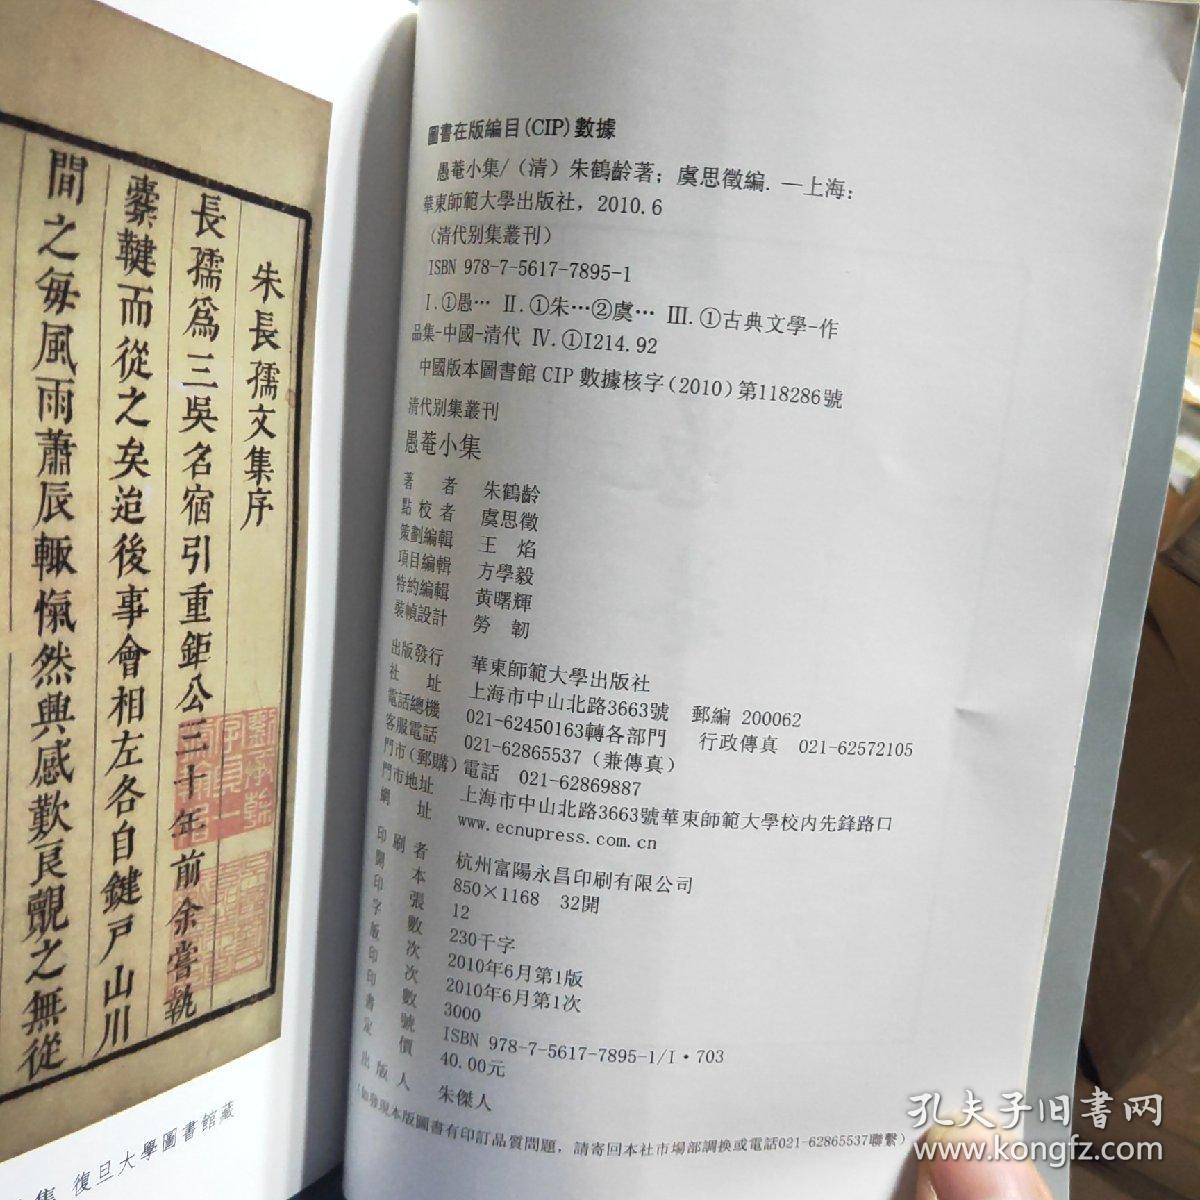 朱長孺文集序
長孺爲三吳名宿引重鉅公三十年前余嘗執
橐鞬而從之矣迨後事會相左各自鍵戸山川
間之每風雨蕭辰輙愾然興感歎良覿之無從
集 復旦大學圖書館藏
圖書在版編目(CIP)數據
愚菴小集/(清)朱鶴齡著;虞思徵編.—上海:
華東師範大學出版社,2010.6
(清代别集叢刊)
ISBN 978-7-5617-7895-1
Ⅰ.①愚… Ⅱ.①朱…②虞… Ⅲ.①古典文學-作
品集-中國-清代 Ⅳ.①I214.92
中國版本圖書館 CIP 數據核字(2010)第118286號
清代别集叢刊
愚菴小集
著 者 朱鶴齡
點校者 虞思徵
策劃編輯 王 焰
項目編輯 方學毅
特約編輯 黄曙輝
裝幀設計 勞 韌
出版發行 華東師範大學出版社
社 址 上海市中山北路3663號 郵編 200062
電話總機 021-62450163轉各部門 行政傳真 021-62572105
客服電話 021-62865537(兼傳真)
門市(郵購)電話 021-62869887
門市地址 上海市中山北路3663號華東師範大學校内先鋒路口
網 址 www.ecnupress.com.cn
印刷者 杭州富陽永昌印刷有限公司
開 本 850×1168 32開
印 張 12
字 數 230千字
版 次 2010年6月第1版
印 次 2010年6月第1次
印 數 3000
書 號 ISBN 978-7-5617-7895-1/I·703
定 價 40.00元
出版人 朱傑人
(如發現本版圖書有印訂品質問題,請寄回本社市場部調换或電話021-62865537聯繫)
孔夫子旧书网
www.kongfz.com